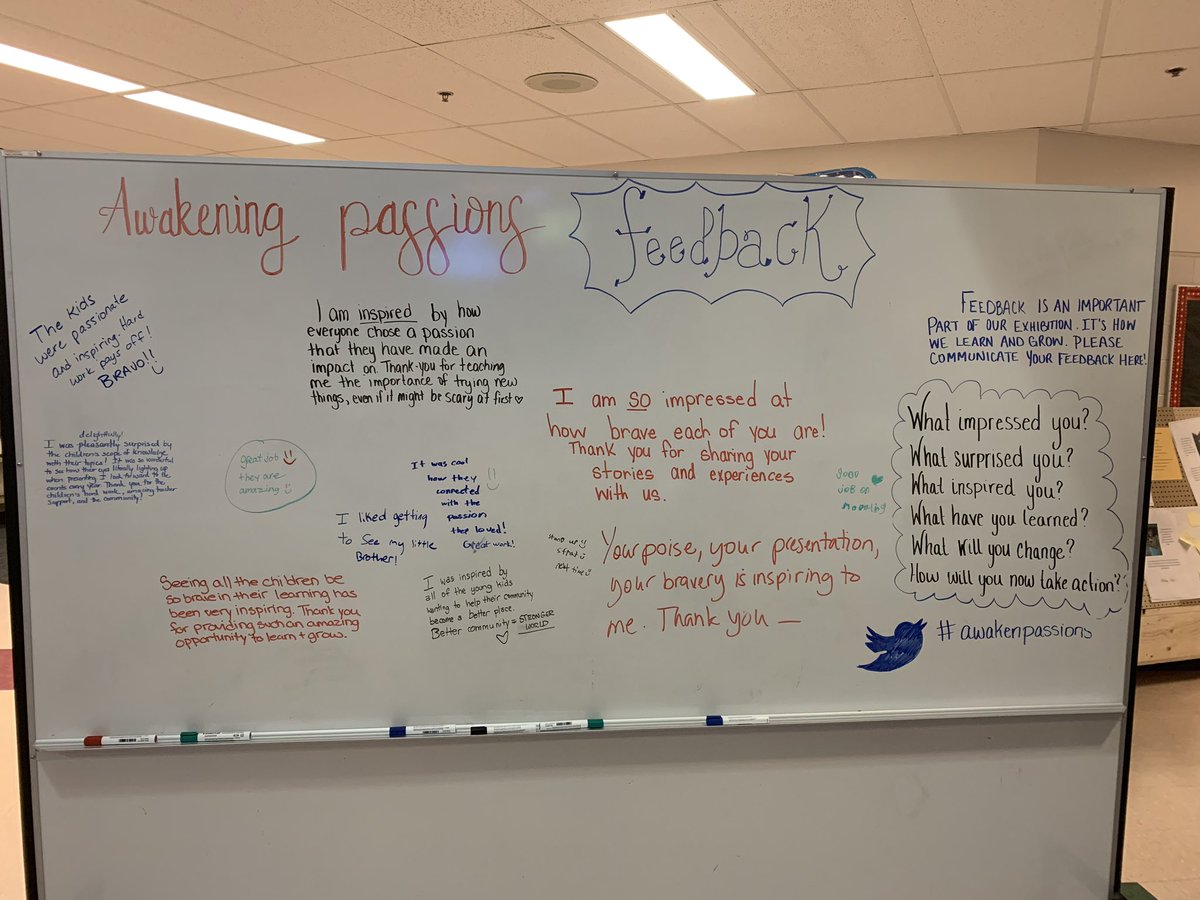 Awakening passions
feedback
The Kids
were passionate
and inspiring. Hard
work pays off!
BRAVO!!
I am inspired by how
everyone chose a passion
that they have made an
impact on. Thank-you for teaching
me the importance of trying new
things, even if it might be scary at first
FEEDBACK IS AN IMPORTANT
PART OF OUR EXHIBITION. IT'S HOW
WE LEARN AND GROW. PLEASE
COMMUNICATE YOUR FEEDBACK HERE!
delightfully!
I was pleasantly surprised by
the children's scope of knowledge
with their topics! It was so wonderful
to see how their eyes literally lighting up
when presenting. I look forward to the
events every year. Thank you for the
children's hard work, amazing teacher
support, and the community!
great job
they are
amazing
It was cool
how they
connected
with the
passion
they loved!
Great work!
I liked getting
to See my little
Brother!
I am SO impressed at
how brave each of you are!
Thank you for sharing your
stories and experiences
with us.
good
job on
What impressed you?
What surprised you?
What inspired you?
What have you learned?
What will you change?
How will you now take action?
Seeing all the children be
so brave in their learning has
been very inspiring. Thank you
for providing such an amazing
opportunity to learn + grow.
I was inspired by
all of the young kids
wanting to help their community
become a better place.
Better community = STRONGER
WORLD
next time
Your poise, your presentation,
your bravery is inspiring to
me. Thank you —
#awakenpassions